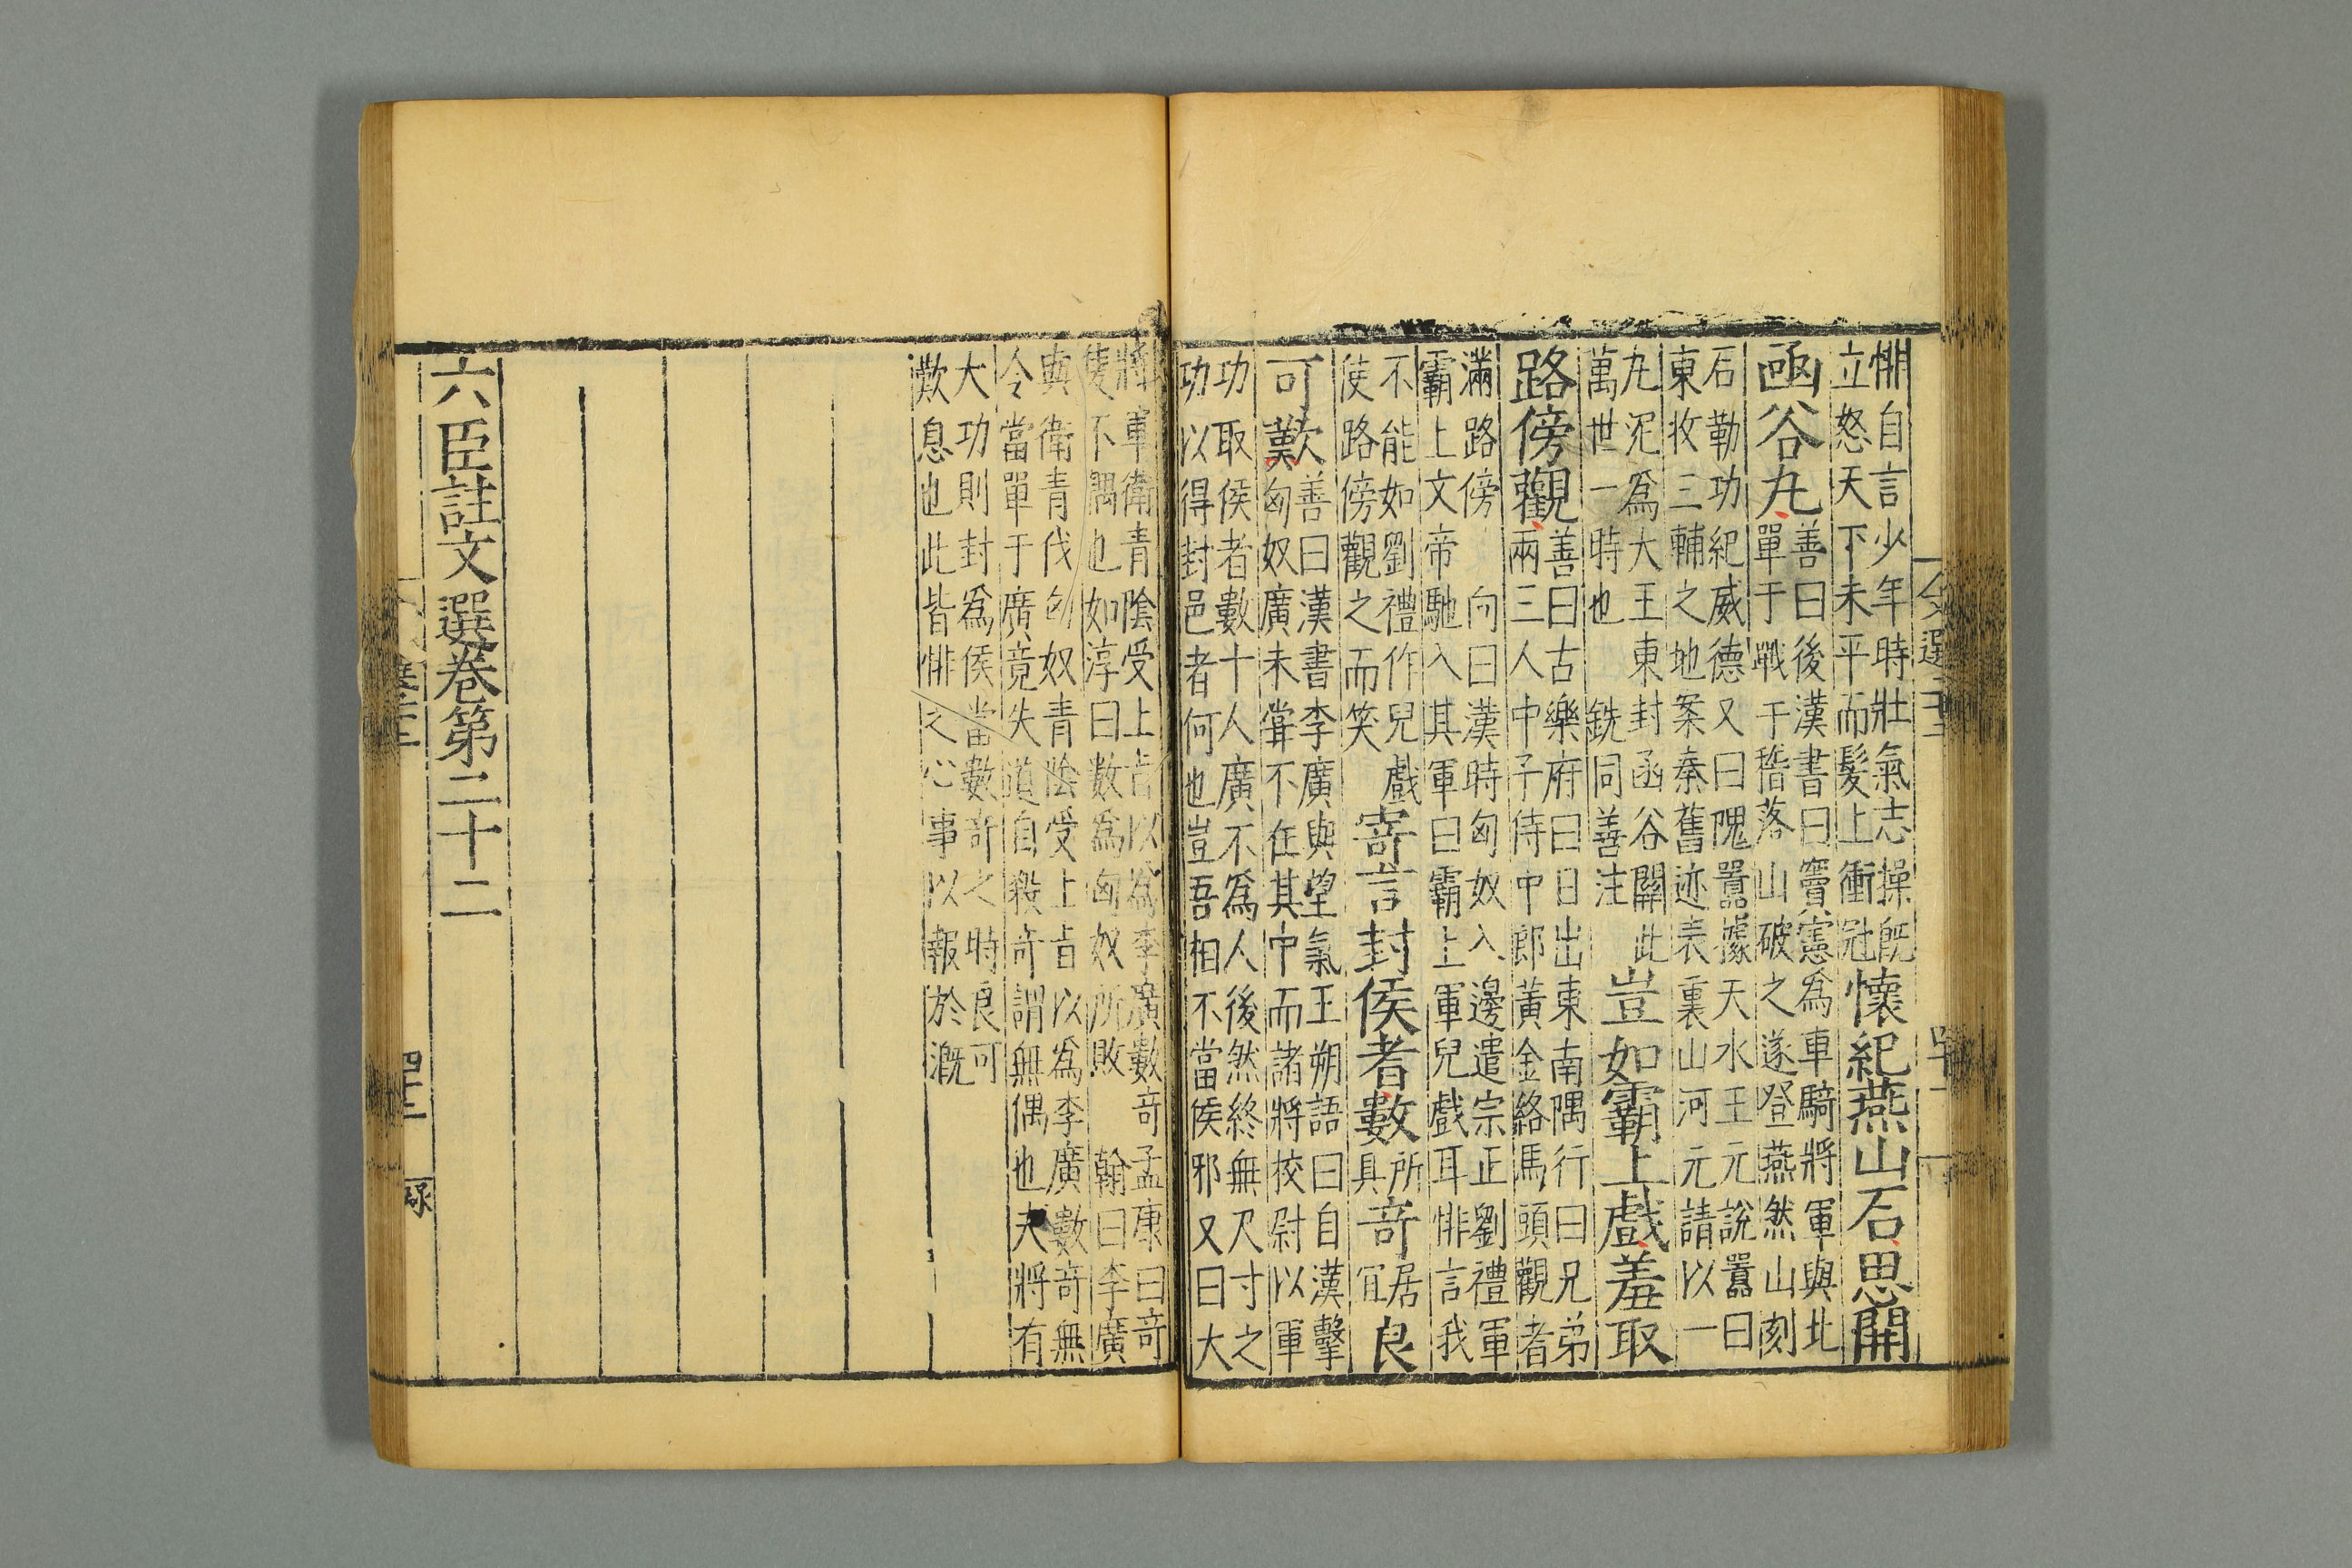 悱自言少年時壯氣志操旣
立怒天下未平而髮上衝冠
懷紀燕山石思開
凾谷丸
善曰後漢書曰竇憲爲車騎將軍與北
單于戰于稽落山破之遂登燕然山刻
石勒功紀威德又曰隗囂據天水王元說囂曰
東收三輔之地案秦舊迹表裏山河元請以一
丸泥爲大王東封函谷關此
萬世一時也 銑同善注
豈如霸上戲羞取
路傍觀
善曰古樂府曰日出東南隅行曰兄弟
兩三人中子侍中郎黃金絡馬頭觀者
滿路傍 向曰漢時匈奴入邊遣宗正劉禮軍
霸上文帝馳入其軍曰霸上軍兒戲耳悱言我
不能如劉禮作兒戲
使路傍觀之而笑
寄言封侯者數
所居
具宜
奇良
可歎
善曰漢書李廣與望氣王朔語曰自漢擊
匈奴廣未甞不在其中而諸將校尉以軍
功取侯者數十人廣不爲人後然終無尺寸之
功以得封邑者何也豈吾相不當侯邪又曰大
將軍衛青陰受上旨以爲李廣數奇孟康曰奇
隻不隅也如淳曰數爲匈奴所敗 翰曰李廣
與衛青伐匈奴青陰受上旨以爲李廣數奇無
令當單于廣竟失道自殺奇謂無偶也夫將有
大功則封爲侯當數奇之時良可
歎息也此皆悱之心事以報於漑
六臣註文選卷第二十二